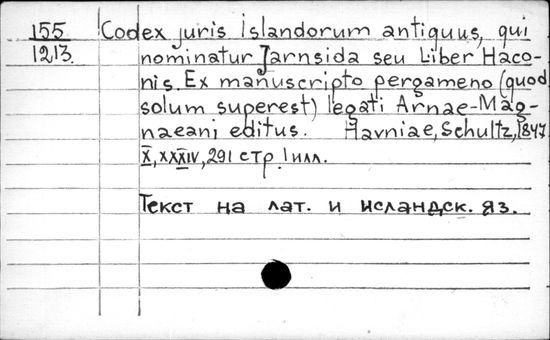 155 Codex juris islandorum antiquus, qui
1213. nominatur Jarnsida seu Liber Haco-
nis. Ex manuscripto pergameno (quod
solum superest) legati Arnae-Mag-
naeani editus. Havniae, Schultz, 1847
X, XXXIV, 291 стр. 1 илл.
Текст на лат. и исландск. яз.